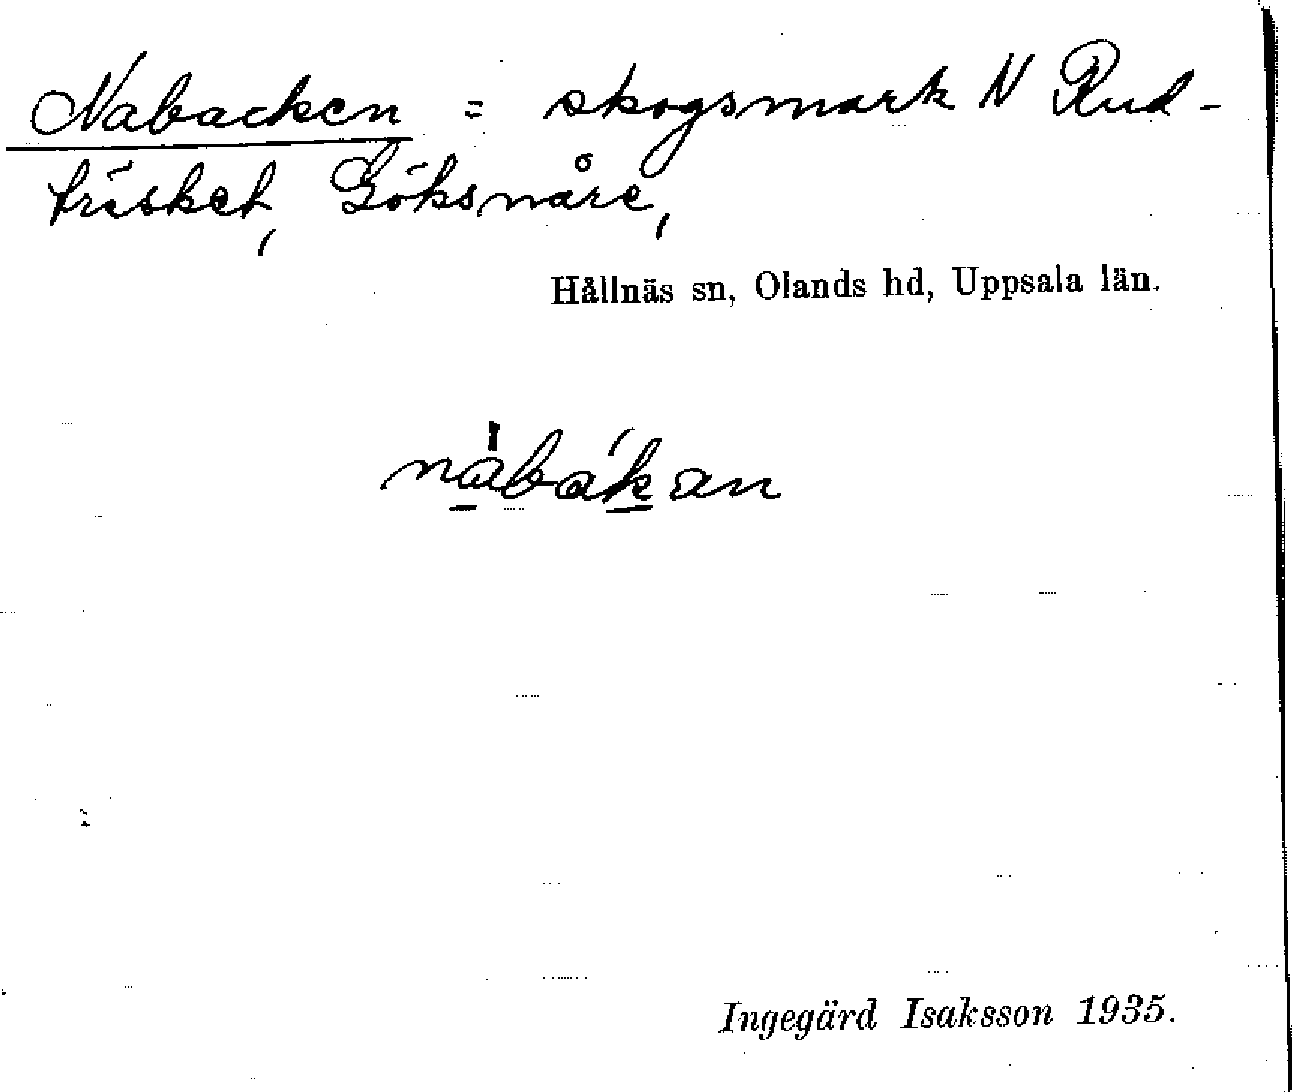 Nabacken = skogsmark N Rud-
träsket, Göksnåre,
Hållnäs sn, Olands hd, Uppsala län.
Ingegärd Isaksson 1935.